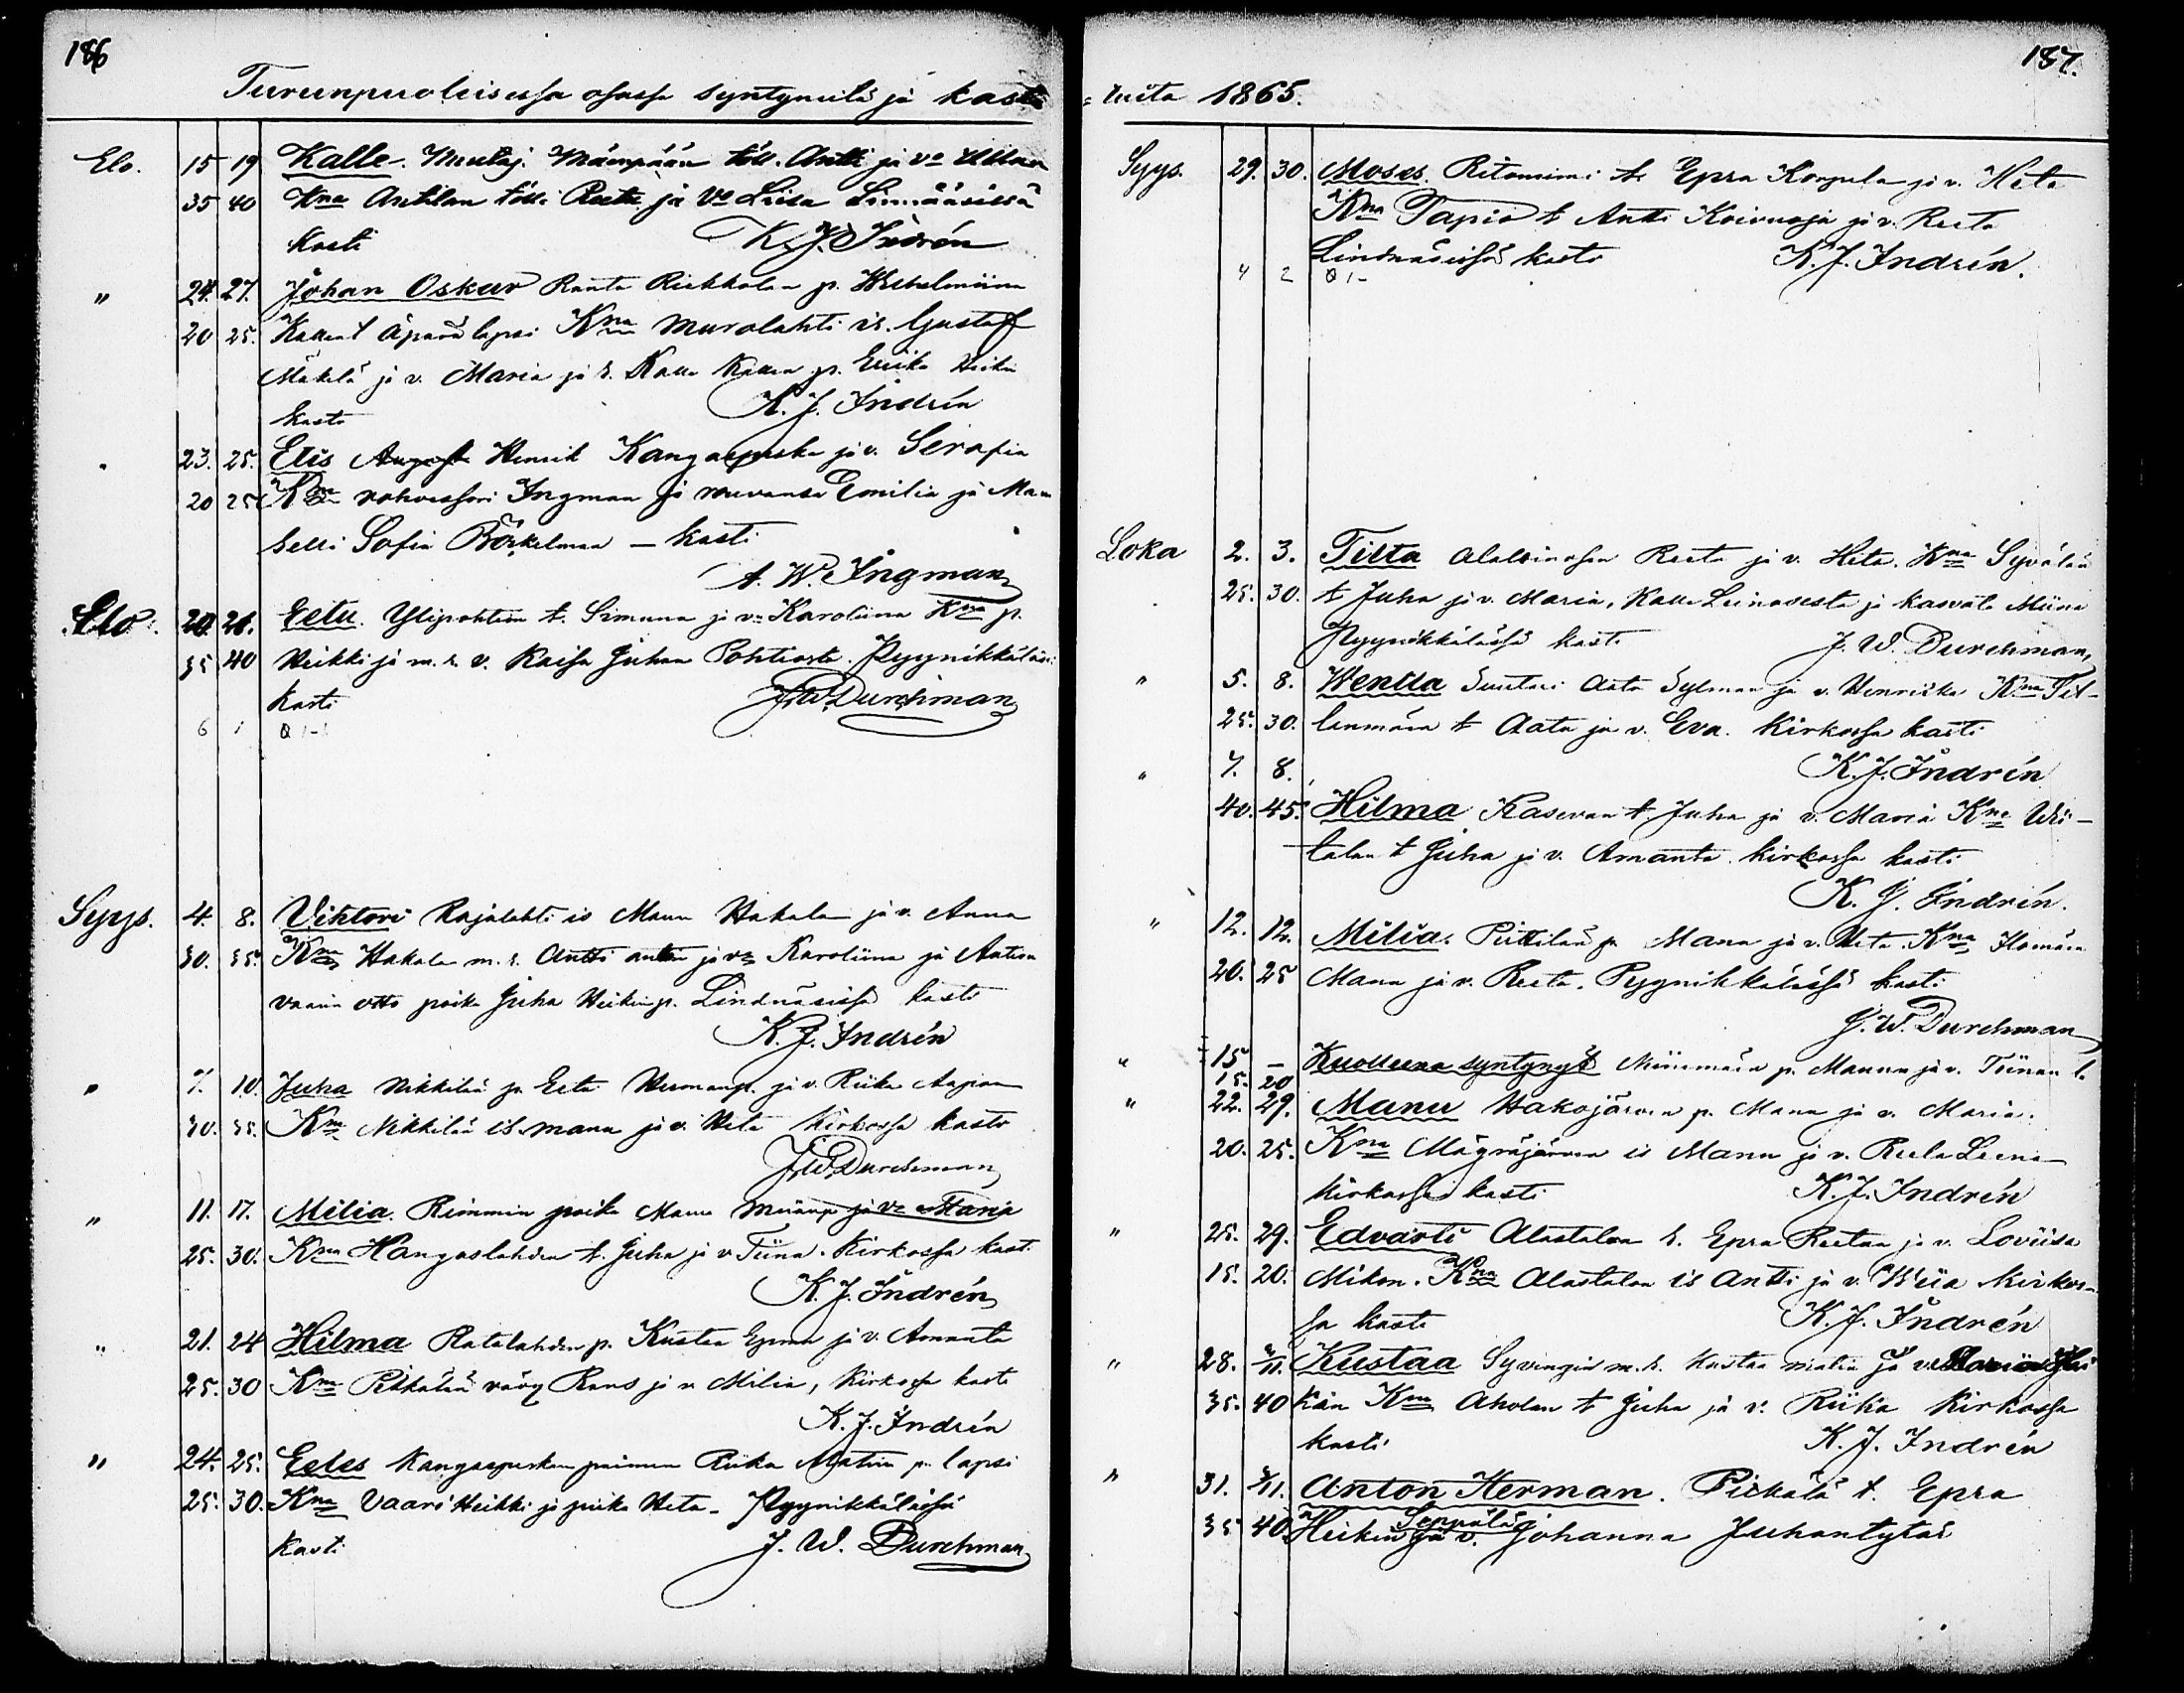 186
Turunpuoleisessa osassa syntyneitä ja kaste
Elo. 15 19 Kalle. Muutaj. Mäenpään töll. Antti ja vo Ullan
35 40 Kna Anttilan töll. Reeta ja Vo Liisa Linnääsissä
kasti K. J. Indrén
" 24. 27. Johan Oskar Ranta Riekkolan p. Wilhelmiina
20 25. Kallent äpärä lapsi Kna Murolahti is. Gustaf
Mäkelä ja v. Maria ja r. Kalle Kallen p. Erika Heikin
kasti K. J. Indrén
" 23. 25. Elis August Henrik Kangaspeska ja v. Serafia
20 25 Kna rohvessori Ingman ja rouvansa Emilia ja Mam
selli Sofia Böckelman — kasti
A. W. Ingman
Elo. 20. 26. Eetu. Ylipohtion t. Simuna ja vo Karoliina Kna p.
35 40 Heikki ja m. r. v. Kaisa Juhan Pohtiosta. Pyynikkäläs:
kasti J. W. Durchman
6 1
Syys. 4. 8. Vihtori Rajalahti is Manu Hakala ja v. Anna
30. 35. Kna Hakala m. r. Antti antin ja vo Karoliina ja Antin
vaarin otto poika Juha Heikinp. Lindnäsissä kasti
K. J. Indrén
" 7. 10. Juha Nikkilä p. Eetu Hermanp. ja v. Riika Aapian
30. 35. Kna Nikkilä is. manu ja v. Heta Kirkossa kasti
J. W. Durchman
" 11. 17. Milia. Rimmin poika Manu Mnänp ja vo Maria
25. 30. Kna Hangaslahden t. Juha ja v. Tiina. Kirkossa kasti
K. J. Indrén
" 21. 24 Hilma Ratalahden p. Kustaa Epran ja v. Amanta
25. 30 Kna Pitkälän vävy Rans ja v. Milia, Kirkossa kasti
K. J. Indrén
" 24. 25. Eeles Kangaspeskan paimen Riika Matin p. lapsi
25. 30. Kna Vaari Heikki ja piika Heta. Pyynikkälässä
kasti J. W. Durchman
187.
= tuita 1865.
Syys. 29. 30. Moses. Ritoniemi t. Epra Korpula ja v. Heta
Kna Tapio t Antti Koivuoja ja v. Reeta
Lindnäsissä kasti K. J. Indrén.
4 2
Loka 2. 3. Tilta Alaloinosen Reeta ja v. Heta. Kna Syvälän
25. 30. t Juha ja v. Maria, Kalle Leinosesta ja kasvatti Miina
Pyynikkälässä kasti J. W. Durchman
" 5. 8. Wenlla Suutari Aata Sylman ja v. Henriika Kna Pel-
25. 30. lenmäen t Aata ja v. Eva. Kirkossa kasti
" 7. 8. K. J. Indrén
40. 45. Hilma Kasevan t. Juha ja v. Maria Kna Wii-
talan t Juha ja v. Amanta. Kirkossa kasti
K. J. Indrén.
" 12. 12. Milia. Pirttilän p. Manu ja v. Heta. Kna Ilomäen
20. 25 Manu ja v. Reeta. Pyynikkälässä kasti
J. W. Durchman
" 15 — Kuolleena syntynyt Niinimäen p. Manun ja v. Tiinan l.
15. 20
" 22. 29. Manu Hakojärven p. Manu ja v. Maria.
20. 25. Kna Mägräjärven is Manu ja v. Reeta Leena
Kirkossa kasti K. J. Indrén
" 25. 29. Edvarti Alastalon r. Epra Reetan ja v. Loviisa
15. 20. Mikon. Kna Alastalon is Antti ja v. Wiia Kirkos-
sa kasti K. J. Indrén
" 28. 11. Kustaa Syvingin m. r. Kustaa matin ja v. Maria Hei
35. 40 kän Kna Aholan t Juha ja v. Riika Kirkossa
kasti K. J. Indrén
" 31. 5/11. Anton Herman. Pitkälä t. Epra
35 40 Heikin Seppälä ja v. Johanna Juhantytär